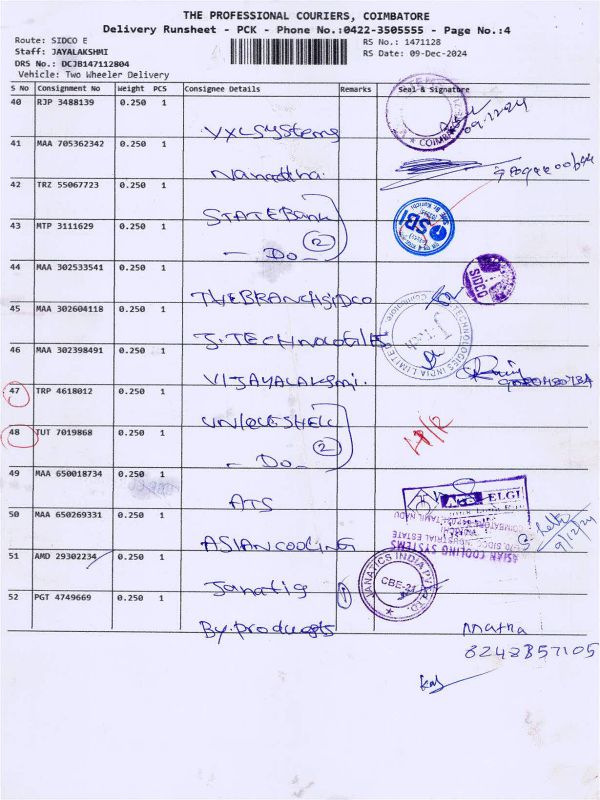 THE PROFESSIONAL COURIERS, COIMBATORE
Delivery Runsheet - PCK - Phone No.:0422-3505555 - Page No.:4
Route: SIDCO E
RS No.: 1471128
Staff: JAYALAKSHMI
RS Date: 09-Dec-2024
DRS No.: DCJB147112804
Vehicle: Two Wheeler Delivery
S No Consignment No Weight PCS Consignee Details Remarks Seal & Signature
40 RJP 3488139 0.250 1
VXL Systems 09.12.24
41 MAA 705362342 0.250 1
42 TRZ 55067723 0.250 1
STATE Bank
43 MTP 3111629 0.250 1
2 SBI
- Do -
44 MAA 302533541 0.250 1
THE BRANCH SIDCO SIDCO
45 MAA 302604118 0.250 1
S. TECHNOLOGIES TECHNOLOGIES INDIA LIMITED
46 MAA 302398491 0.250 1
VIJAYALAKSMI.
47 TRP 4618012 0.250 1
48 TUT 7019868 0.250 1
2
- Do -
49 MAA 650018734 0.250 1
ATS ELGI
50 MAA 650269331 0.250 1
ASIAN COOLING ASIAN COOLING SYSTEMS
9/12/24
51 AMD 29302234 0.250 1
JANATICS INDIA PVT. LTD. CBE-21
52 PGT 4749669 0.250 1
By. products